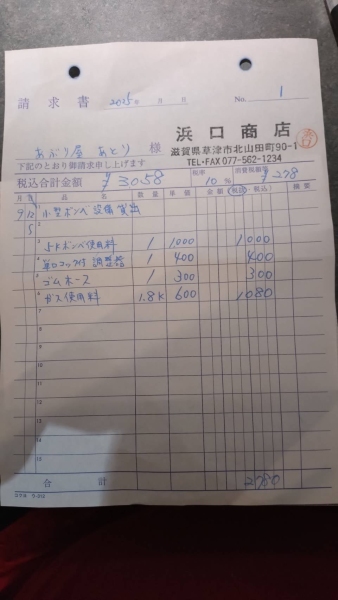 請求書 2025年 月 日 No. 1
あぶり屋 あとり 様
浜口商店
滋賀県草津市北山田町90-1
TEL•FAX 077-562-1234
下記のとおり御請求申し上げます
税込合計金額 ¥3058 税率 10% 消費税額等 ¥278
月 日 品名 数量 単価 金額(税抜・税込) 摘要
9 12 1 小型ボンベ設備貸出
5 2
3 5kボンベ使用料 1 1000 1000
4 調整器 1 400 400
5 ゴムホース 1 300 300
6 ガス使用料 1.8K 600 1080
7
8
9
10
11
12
13
14
15
合計 2780